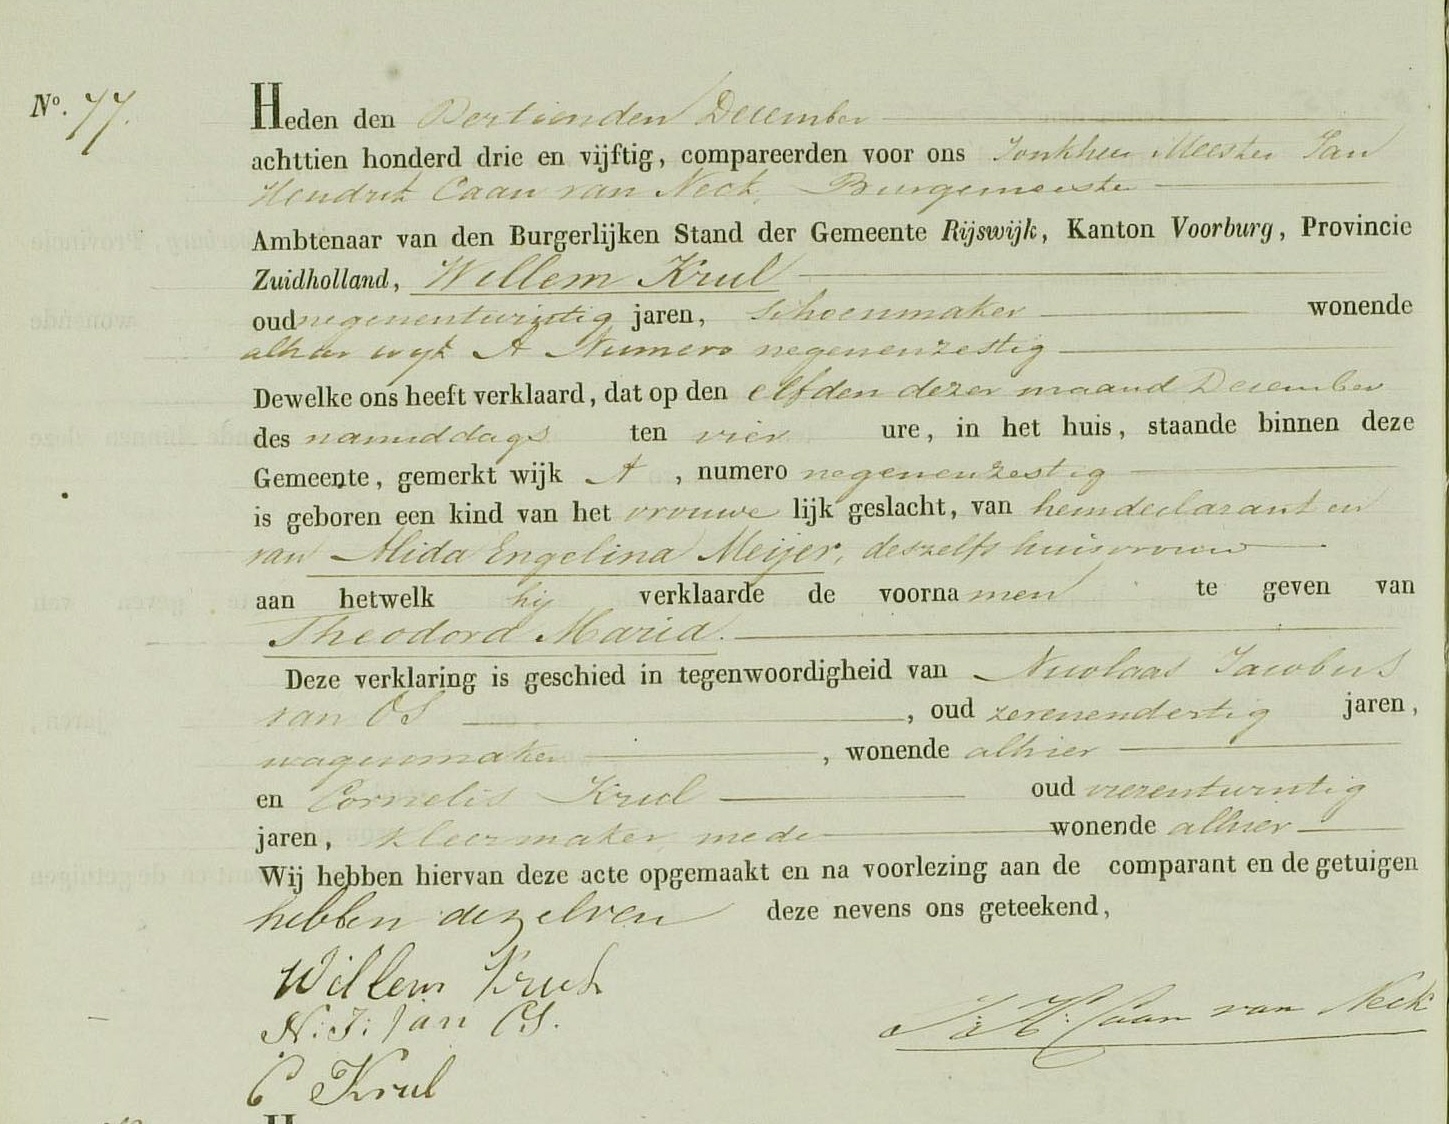 No. 77.
Heden den Dertienden December
achttien honderd drie en vijftig, compareerden voor ons Jonkheer Meester Jan
Hendrik Caan van Neck, Burgemeester
Ambtenaar van den Burgerlijken Stand der Gemeente Rijswijk, Kanton Voorburg, Provincie
Zuidholland, Willem Krul
oud negenentwintig jaren, schoenmaker wonende
alhier wijk A Numero negenenzestig
Dewelke ons heeft verklaard, dat op den elfden dezer maand December
des namiddags ten vier ure, in het huis, staande binnen deze
Gemeente, gemerkt wijk A, numero negenenzestig
is geboren een kind van het vrouwe lijk geslacht, van hem declarant en
van Alida Engelina Meijer, deszelfs huisvrouw
aan hetwelk hij verklaarde de voorna men te geven van
Theodora Maria.
Deze verklaring is geschied in tegenwoordigheid van Nicolaas Jacobus
van Os, oud zevenendertig jaren,
wagenmaker, wonende alhier
en Cornelis Krul oud vierentwintig
jaren, kleermaker, mede wonende alhier
Wij hebben hiervan deze acte opgemaakt en na voorlezing aan de comparant en de getuigen
hebben dezelven deze nevens ons geteekend,
Willem Krul
N: J: van Os.
J: H: Caan van Neck
C Krul